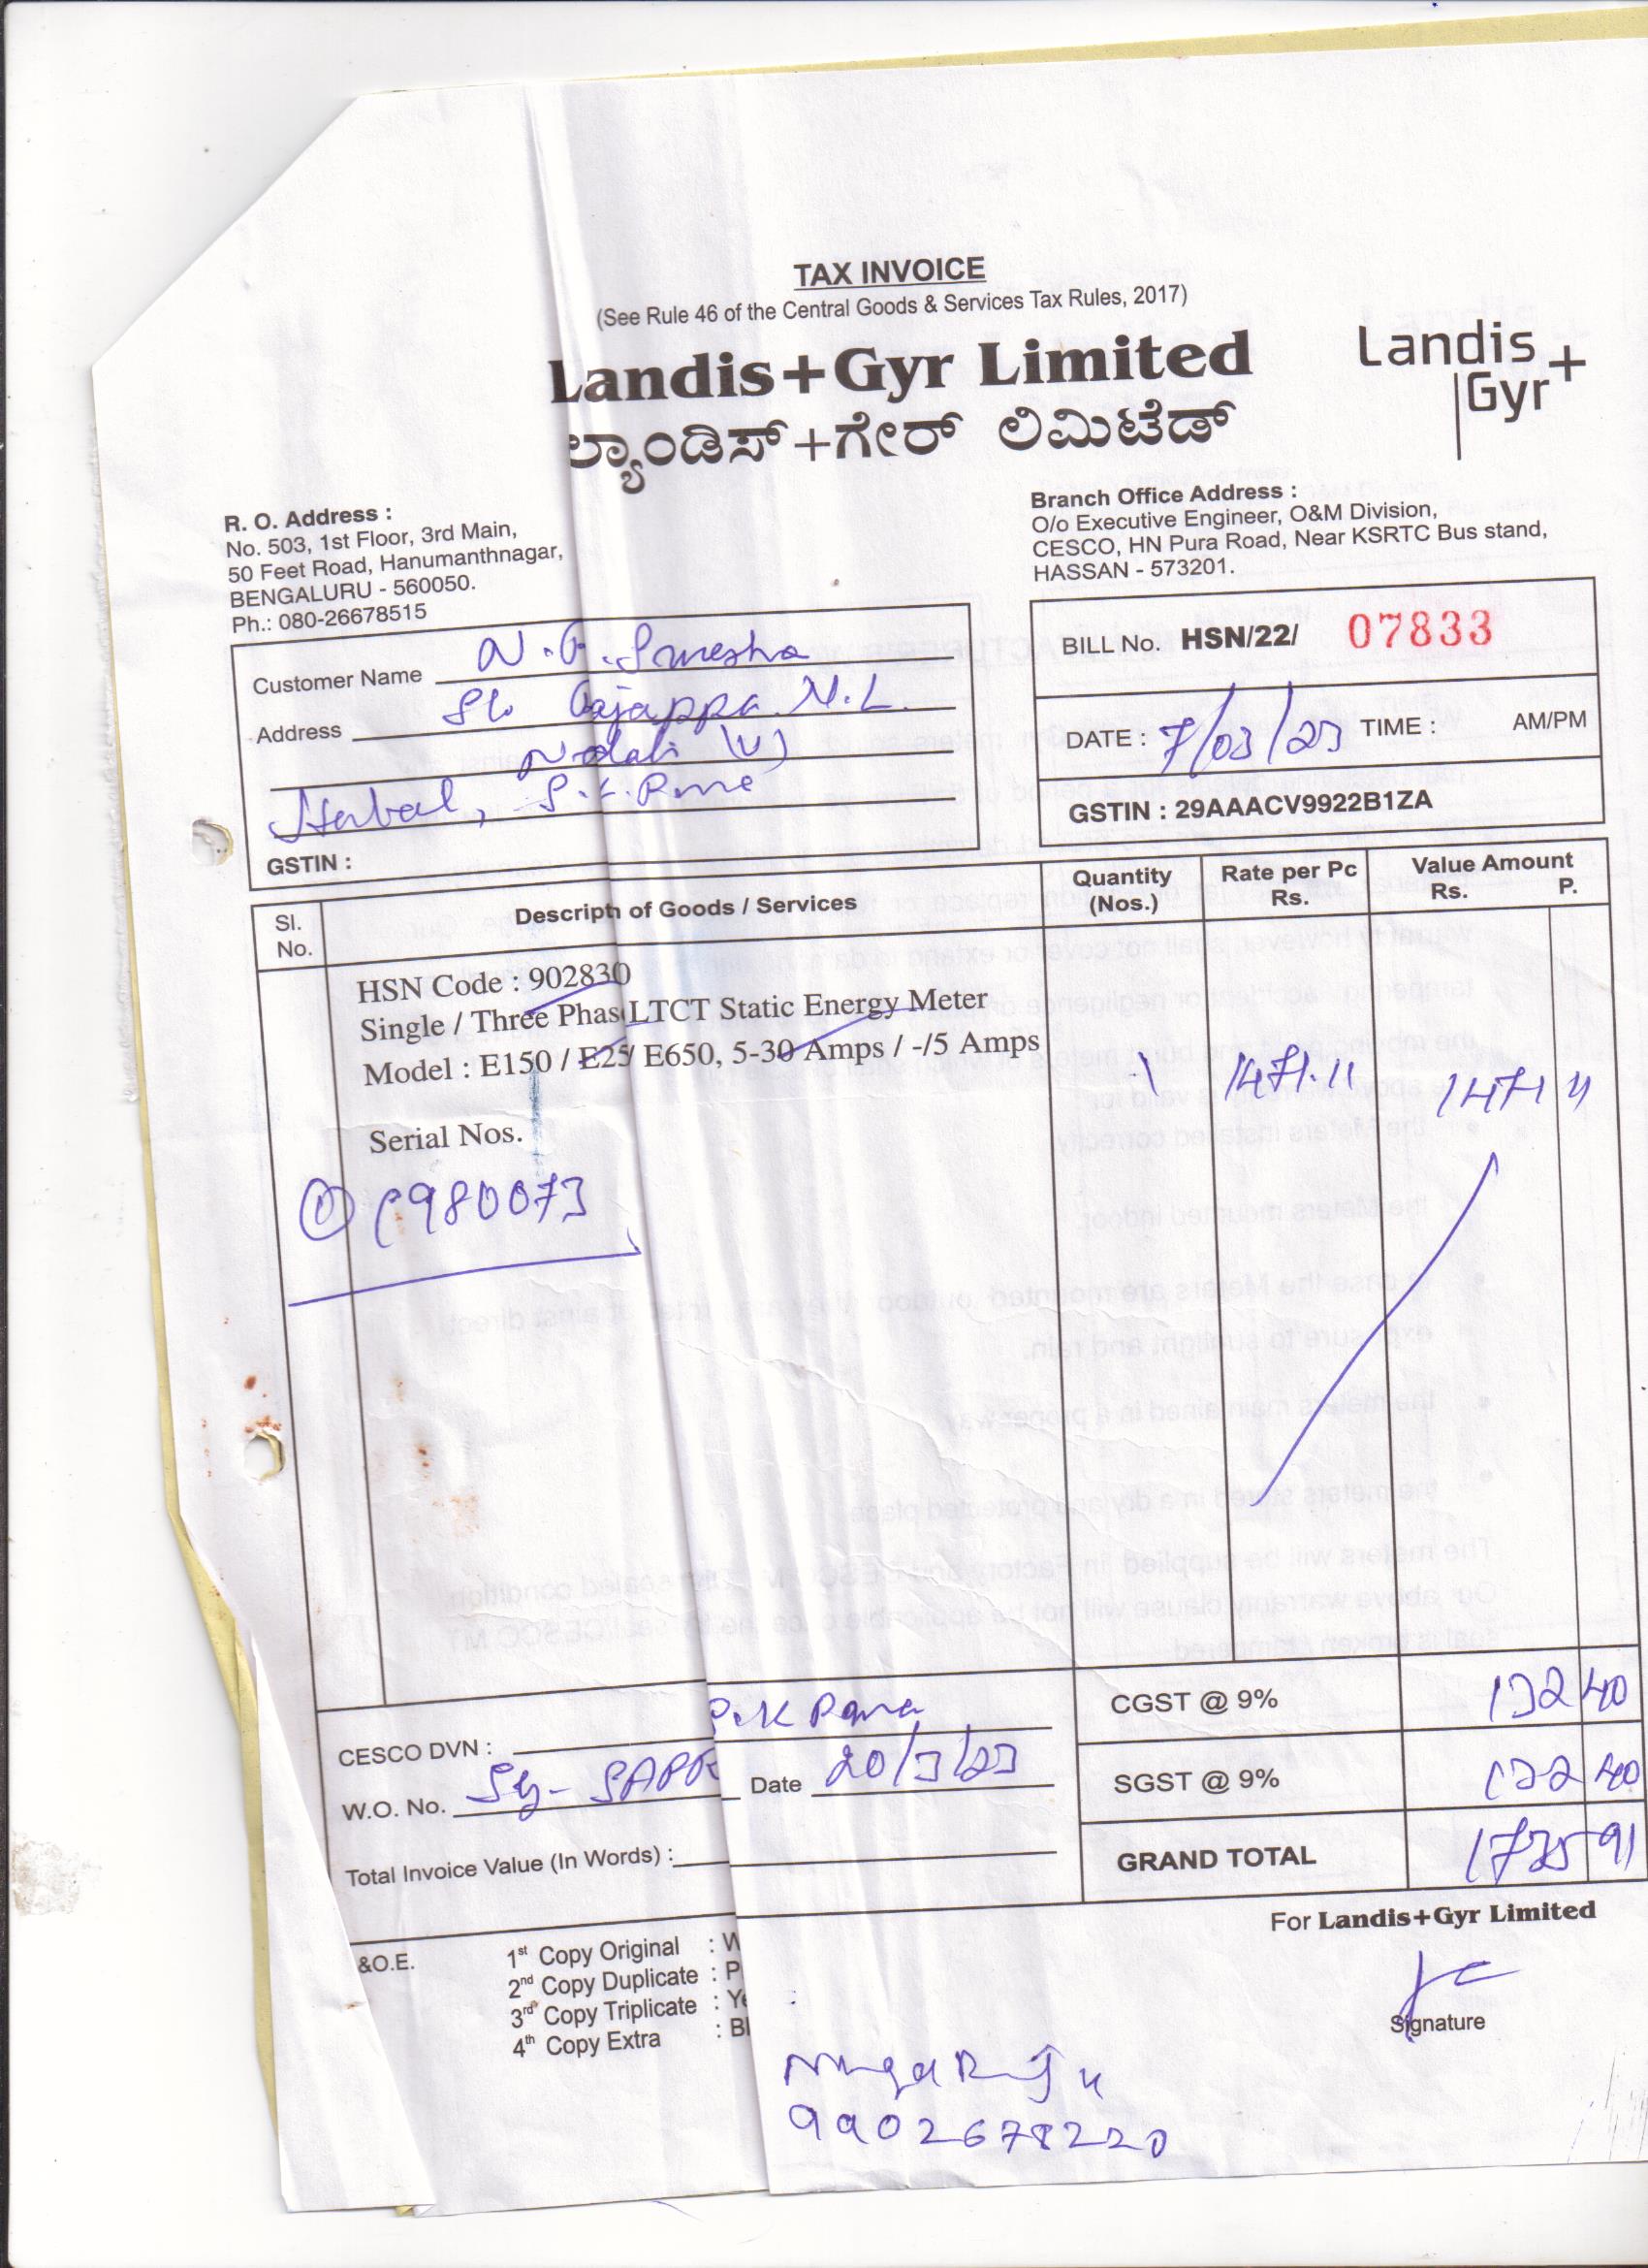 TAX INVOICE
(See Rule 46 of the Central Goods & Services Tax Rules, 2017)
Landis+Gyr Limited
ಲ್ಯಾಂಡಿಸ್+ಗೇರ್ ಲಿಮಿಟೆಡ್
Landis+
Gyr
R. O. Address :
No. 503, 1st Floor, 3rd Main,
50 Feet Road, Hanumanthnagar,
BENGALURU - 560050.
Ph.: 080-26678515
Branch Office Address :
O/o Executive Engineer, O&M Division,
CESCO, HN Pura Road, Near KSRTC Bus stand,
HASSAN - 573201.
Customer Name
Address S/o M.L.
GSTIN :
BILL No. HSN/22/ 07833
DATE : 7/03/23 TIME : AM/PM
GSTIN : 29AAACV9922B1ZA
Sl. No. Descripth of Goods / Services Quantity (Nos.) Rate per Pc Rs. Value Amount Rs. P.
HSN Code : 902830
Single / Three Phas LTCT Static Energy Meter
Model : E150 / E25/ E650, 5-30 Amps / -/5 Amps 1 1471.11 1471 11
Serial Nos.
980073
CGST @ 9% 132 40
CESCO DVN :
SGST @ 9% 132 40
W.O. No. Date 20/3/23
GRAND TOTAL 1735 91
Total Invoice Value (In Words) :
For Landis+Gyr Limited
&O.E.
1st Copy Original : W
2nd Copy Duplicate : P
3rd Copy Triplicate : Ye
4th Copy Extra : Bl
Signature
NagaRaju
9902678220